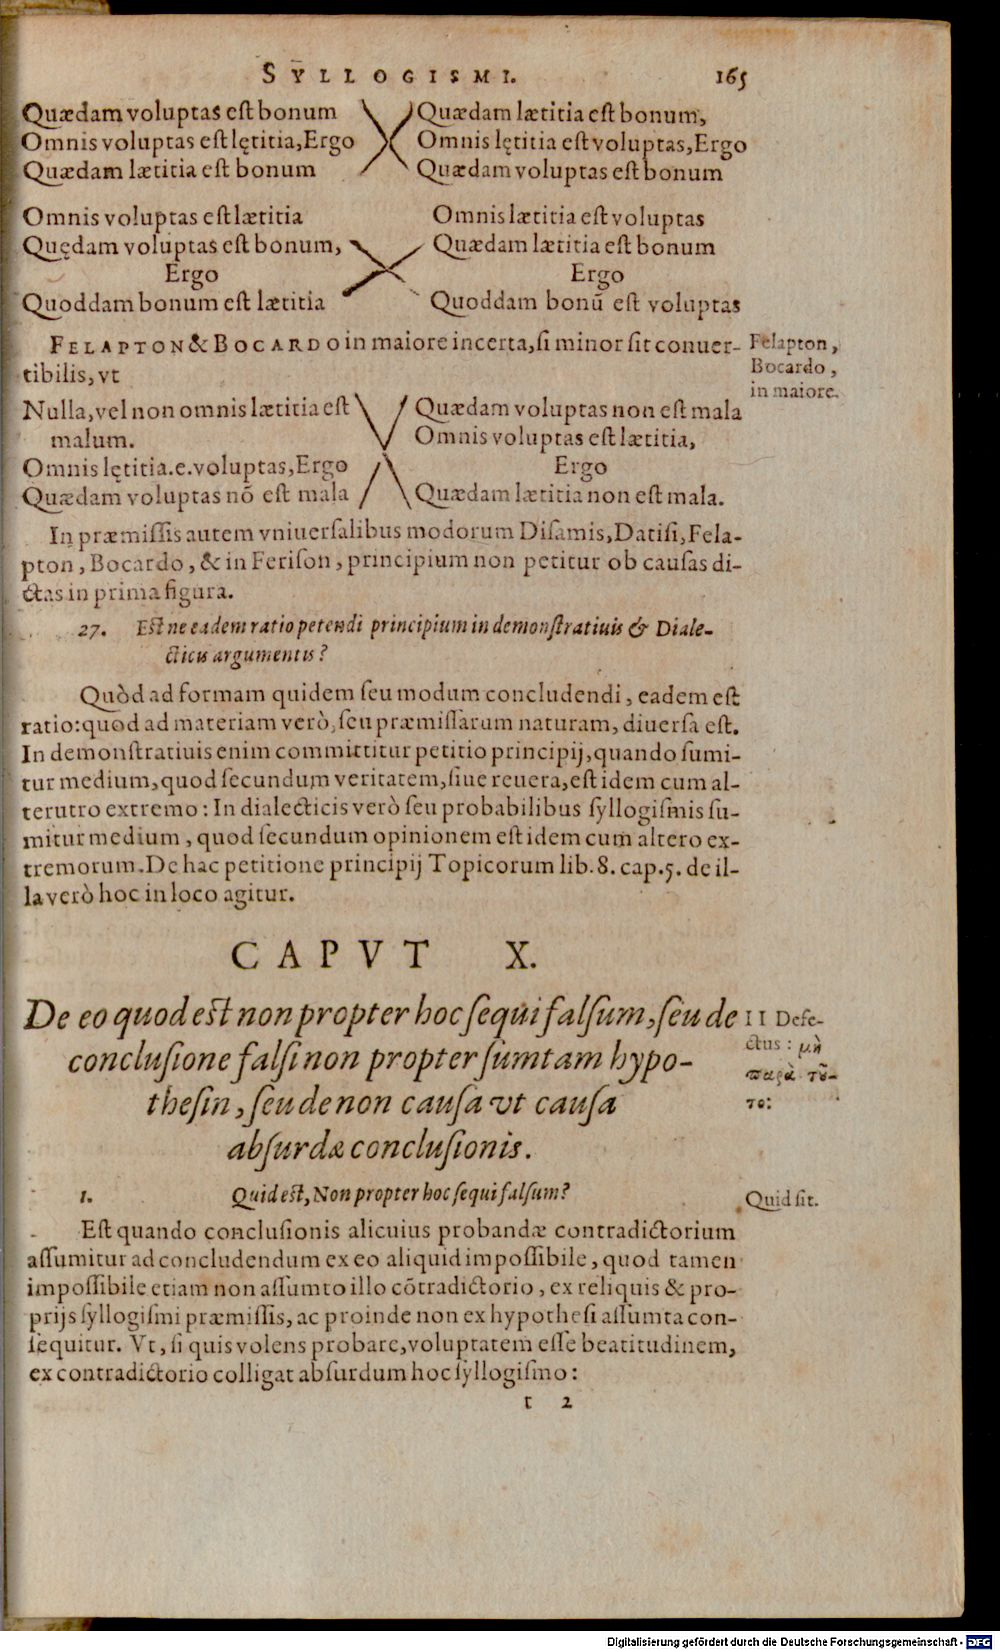 SYLLOGISMI. 165
Quædam voluptas est bonum
Omnis voluptas est lętitia, Ergo
Quædam lætitia est bonum
Quædam lætitia est bonum,
Omnis lętitia est voluptas, Ergo
Quædam voluptas est bonum
Omnis voluptas est lætitia
Quędam voluptas est bonum,
Ergo
Quoddam bonum est lætitia
Omnis lætitia est voluptas
Quædam lætitia est bonum
Ergo
Quoddam bonū est voluptas
FELAPTON & BOCARDO in maiore incerta, si minor sit conuer-
tibilis, vt
Felapton,
Bocardo,
in maiore.
Nulla, vel non omnis lætitia est
malum.
Omnis lętitia.e.voluptas, Ergo
Quædam voluptas nō est mala
Quædam voluptas non est mala
Omnis voluptas est lætitia,
Ergo
Quædam lætitia non est mala.
In præmissis autem vniuersalibus modorum Disamis, Datisi, Fela-
pton, Bocardo, & in Ferison, principium non petitur ob causas di-
ctas in prima figura.
27. Est ne eadem ratio petendi principium in demonstratiuis & Diale-
cticis argumentis?
Quòd ad formam quidem seu modum concludendi, eadem est
ratio: quod ad materiam verò, seu præmissarum naturam, diuersa est.
In demonstratiuis enim committitur petitio principij, quando sumi-
tur medium, quod secundum veritatem, siue reuera, est idem cum al-
terutro extremo: In dialecticis verò seu probabilibus syllogismis su-
mitur medium, quod secundum opinionem est idem cum altero ex-
tremorum. De hac petitione principij Topicorum lib. 8. cap. 5. de il-
la verò hoc in loco agitur.
CAPVT X.
De eo quod est non propter hoc sequi falsum, seu de
conclusione falsi non propter sumtam hypo-
thesin, seu de non causa vt causa
absurdæ conclusionis.
II Defe-
ctus: μὴ
παρὰ τοῦ-
το:
1. Quid est, Non propter hoc sequi falsum?
Quid sit.
Est quando conclusionis alicuius probandæ contradictorium
assumitur ad concludendum ex eo aliquid impossibile, quod tamen
impossibile etiam non assumto illo cōtradictorio, ex reliquis & pro-
prijs syllogismi præmissis, ac proinde non ex hypothesi assumta con-
sequitur. Vt, si quis volens probare, voluptatem esse beatitudinem,
ex contradictorio colligat absurdum hoc syllogismo:
t 2
Digitalisierung gefördert durch die Deutsche Forschungsgemeinschaft - DFG